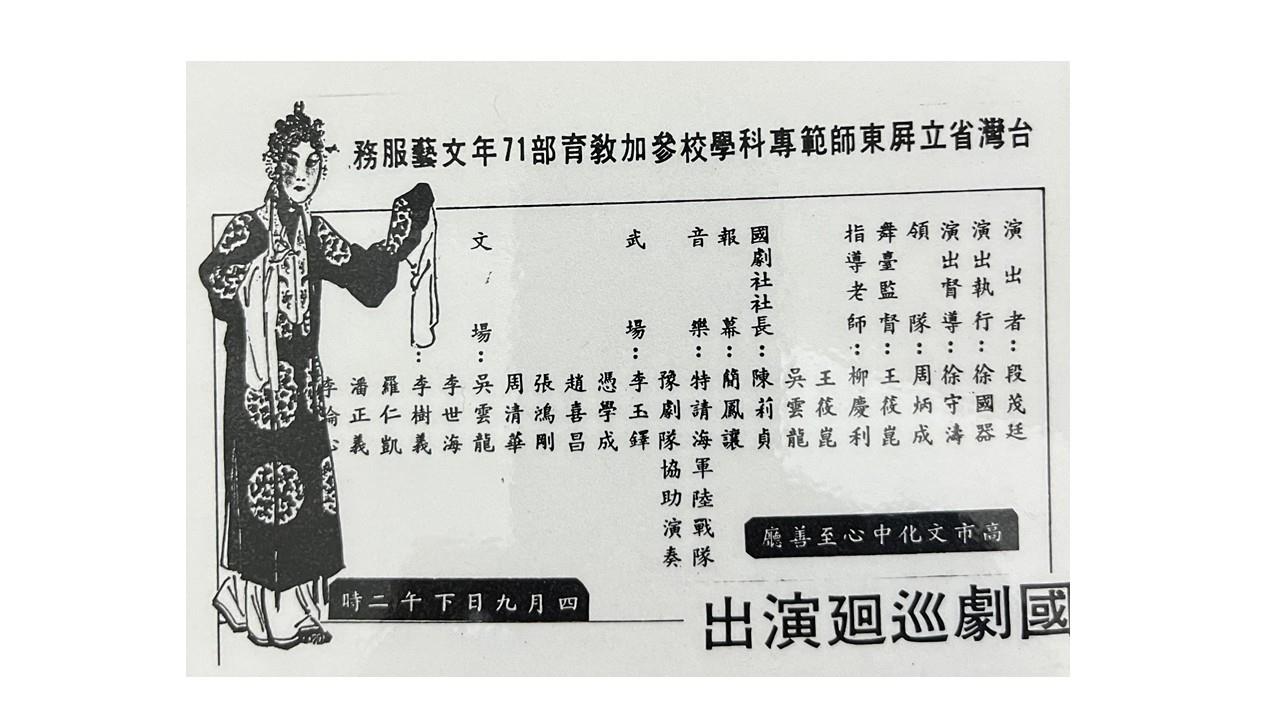 台灣省立屏東師範專科學校參加教育部71年文藝服務
演出者：段茂廷
演出執行：徐國器
演出督導：徐守濤
領隊：周炳成
舞臺監督：王筱崑
指導老師：柳慶利
王筱崑
吳雲龍
國劇社社長：陳莉貞
報幕：簡鳳讓
音樂：特請海軍陸戰隊
豫劇隊協助演奏
武場：李玉鐸
馮學成
趙喜昌
張鴻剛
周清華
文場：吳雲龍
李世海
李樹義
羅仁凱
潘正義
李
高市文化中心至善廳
國劇巡廻演出
四月九日下午二時